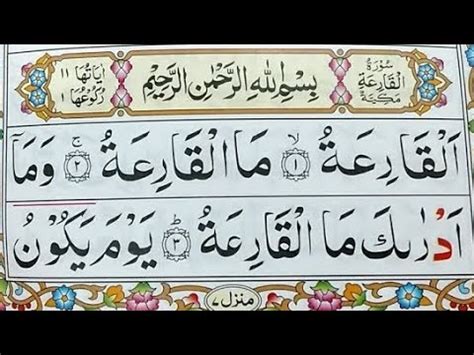 سُوْرَةُ الْقَارِعَةِ مَكِّيَّةٌ
بِسْمِ اللّٰهِ الرَّحْمٰنِ الرَّحِيْمِ
اٰيَاتُهَا ١١ رُكُوْعُهَا ١
اَلْقَارِعَةُ ۙ﴿۱﴾ مَا الْقَارِعَةُ ۚ﴿۲﴾ وَمَاۤ
اَدْرٰىكَ مَا الْقَارِعَةُ ؕ﴿۳﴾ يَوْمَ يَكُوْنُ
منزل ٧